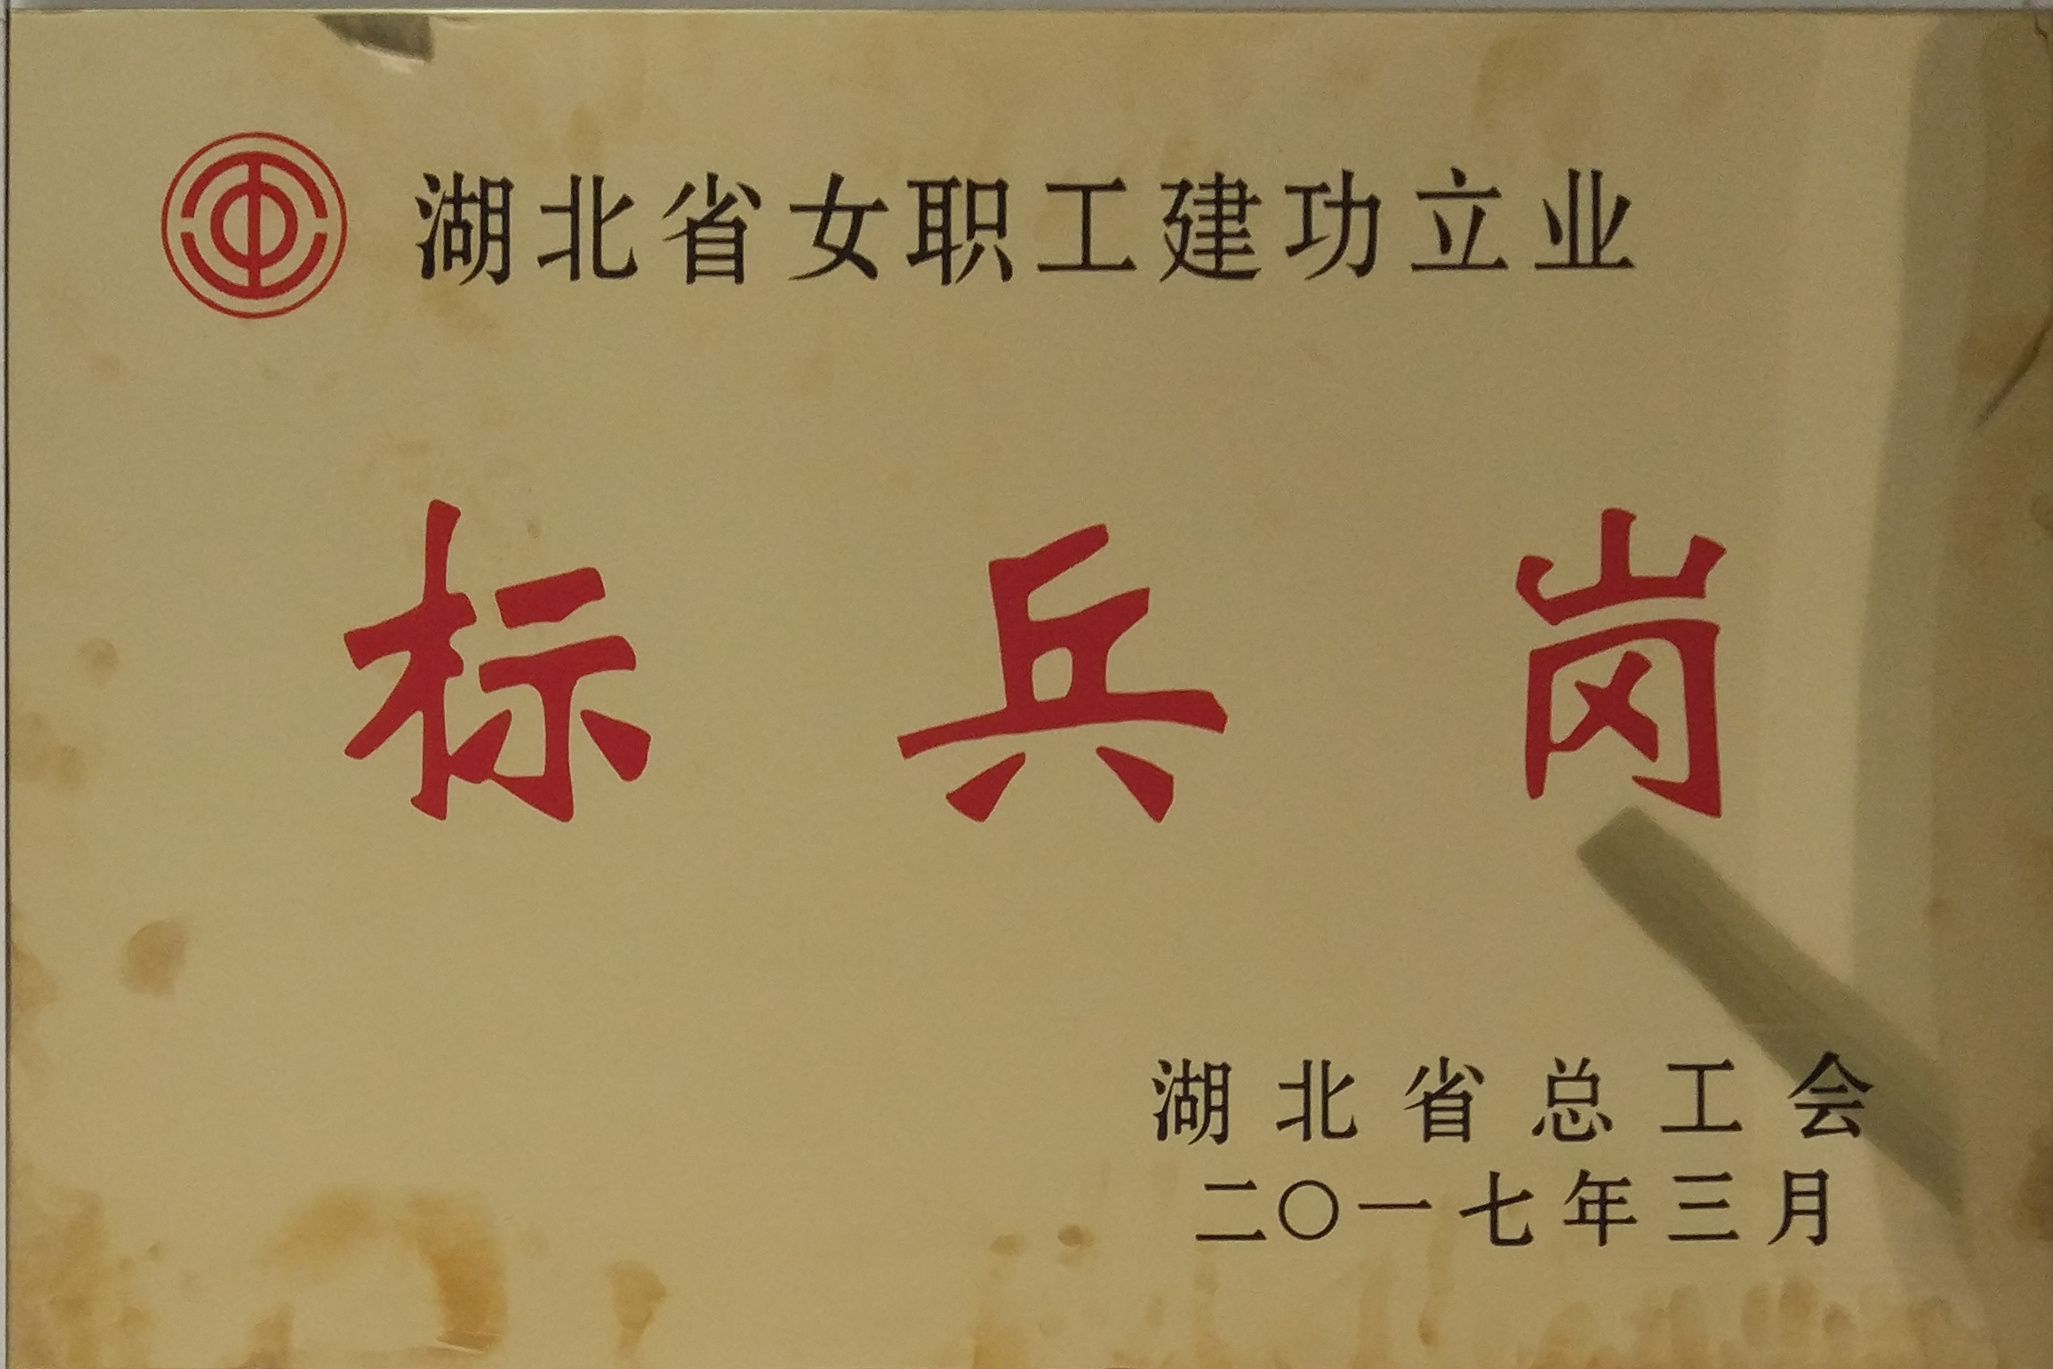 湖北省女职工建功立业
标兵岗
湖北省总工会
二〇一七年三月